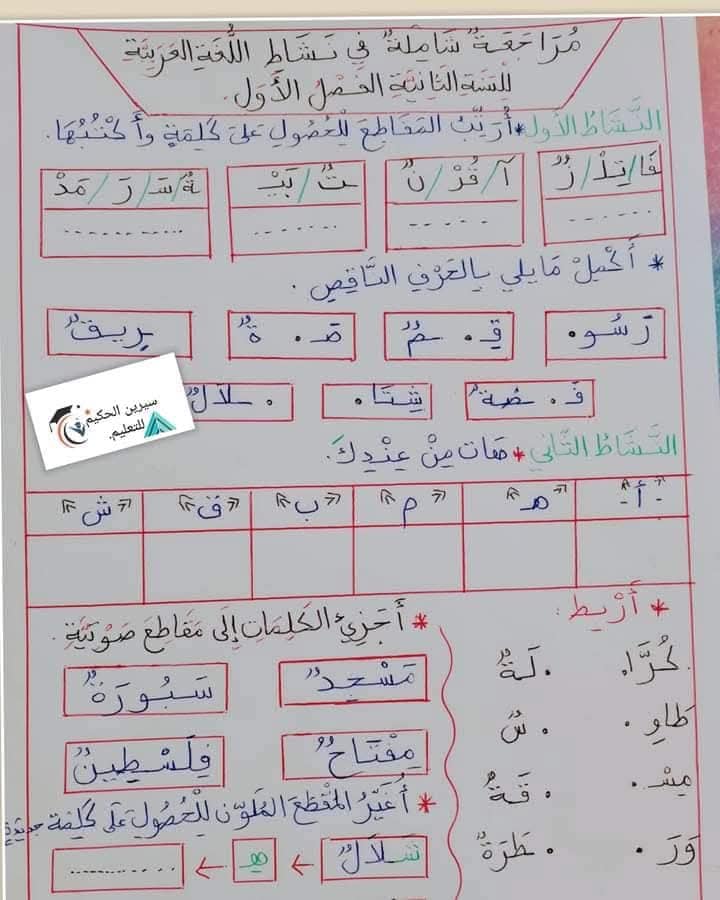 مُرَاجَعَةٌ شَامِلَةٌ فِي نَشَاطِ اللُّغَةِ العَرَبِيَّةِ
لِلسَّنَةِ الثَّانِيَةِ الفَصْلُ الأَوَّل.
النَّشَاطُ الأَوَّل * أُرَتِّبُ المَقَاطِعَ لِلْحُصُولِ عَلَى كَلِمَةٍ وَأَكْتُبُهَا.
فَا/تِلْ/زٌ آ/قُرْ/نٌ تٌ/بَيْـ ةٌ/سَـ/رَ/مَدْ
............ ............ ............ ............
* أَكْمِلْ مَا يَلِي بِالحَرْفِ النَّاقِصِ.
رَسُو. قِـ.ـمٌ صَـ.ةٌ يرِيفٌ
فُـ.ـصَةٌ شِتَا. .ـلَالٌ
سيرين الحكيم
للتعليم.
النَّشَاطُ الثَّانِي * هَات مِنْ عِنْدِكَ.
- أَ - "هـ" "م" "ب" "ق" "ش"
* أَرْبِط:
كُرَّا. .لَةٌ
طَاوِ. .سٌ
مِسْـ. .قَةٌ
وَرَ. .طَرَةٌ
* أُجَزِّئُ الكَلِمَاتِ إِلَى مَقَاطِعَ صَوْتِيَّةٍ.
مَسْجِدٌ سَبُورَةٌ
مِفْتَاحٌ فِلَسْطِينٌ
* أُغَيِّرُ المَقْطَعَ المُلَوَّن لِلْحُصُولِ عَلَى كَلِمَة جَدِيدَةٍ
شَلَالٌ ← هِـ ← ............